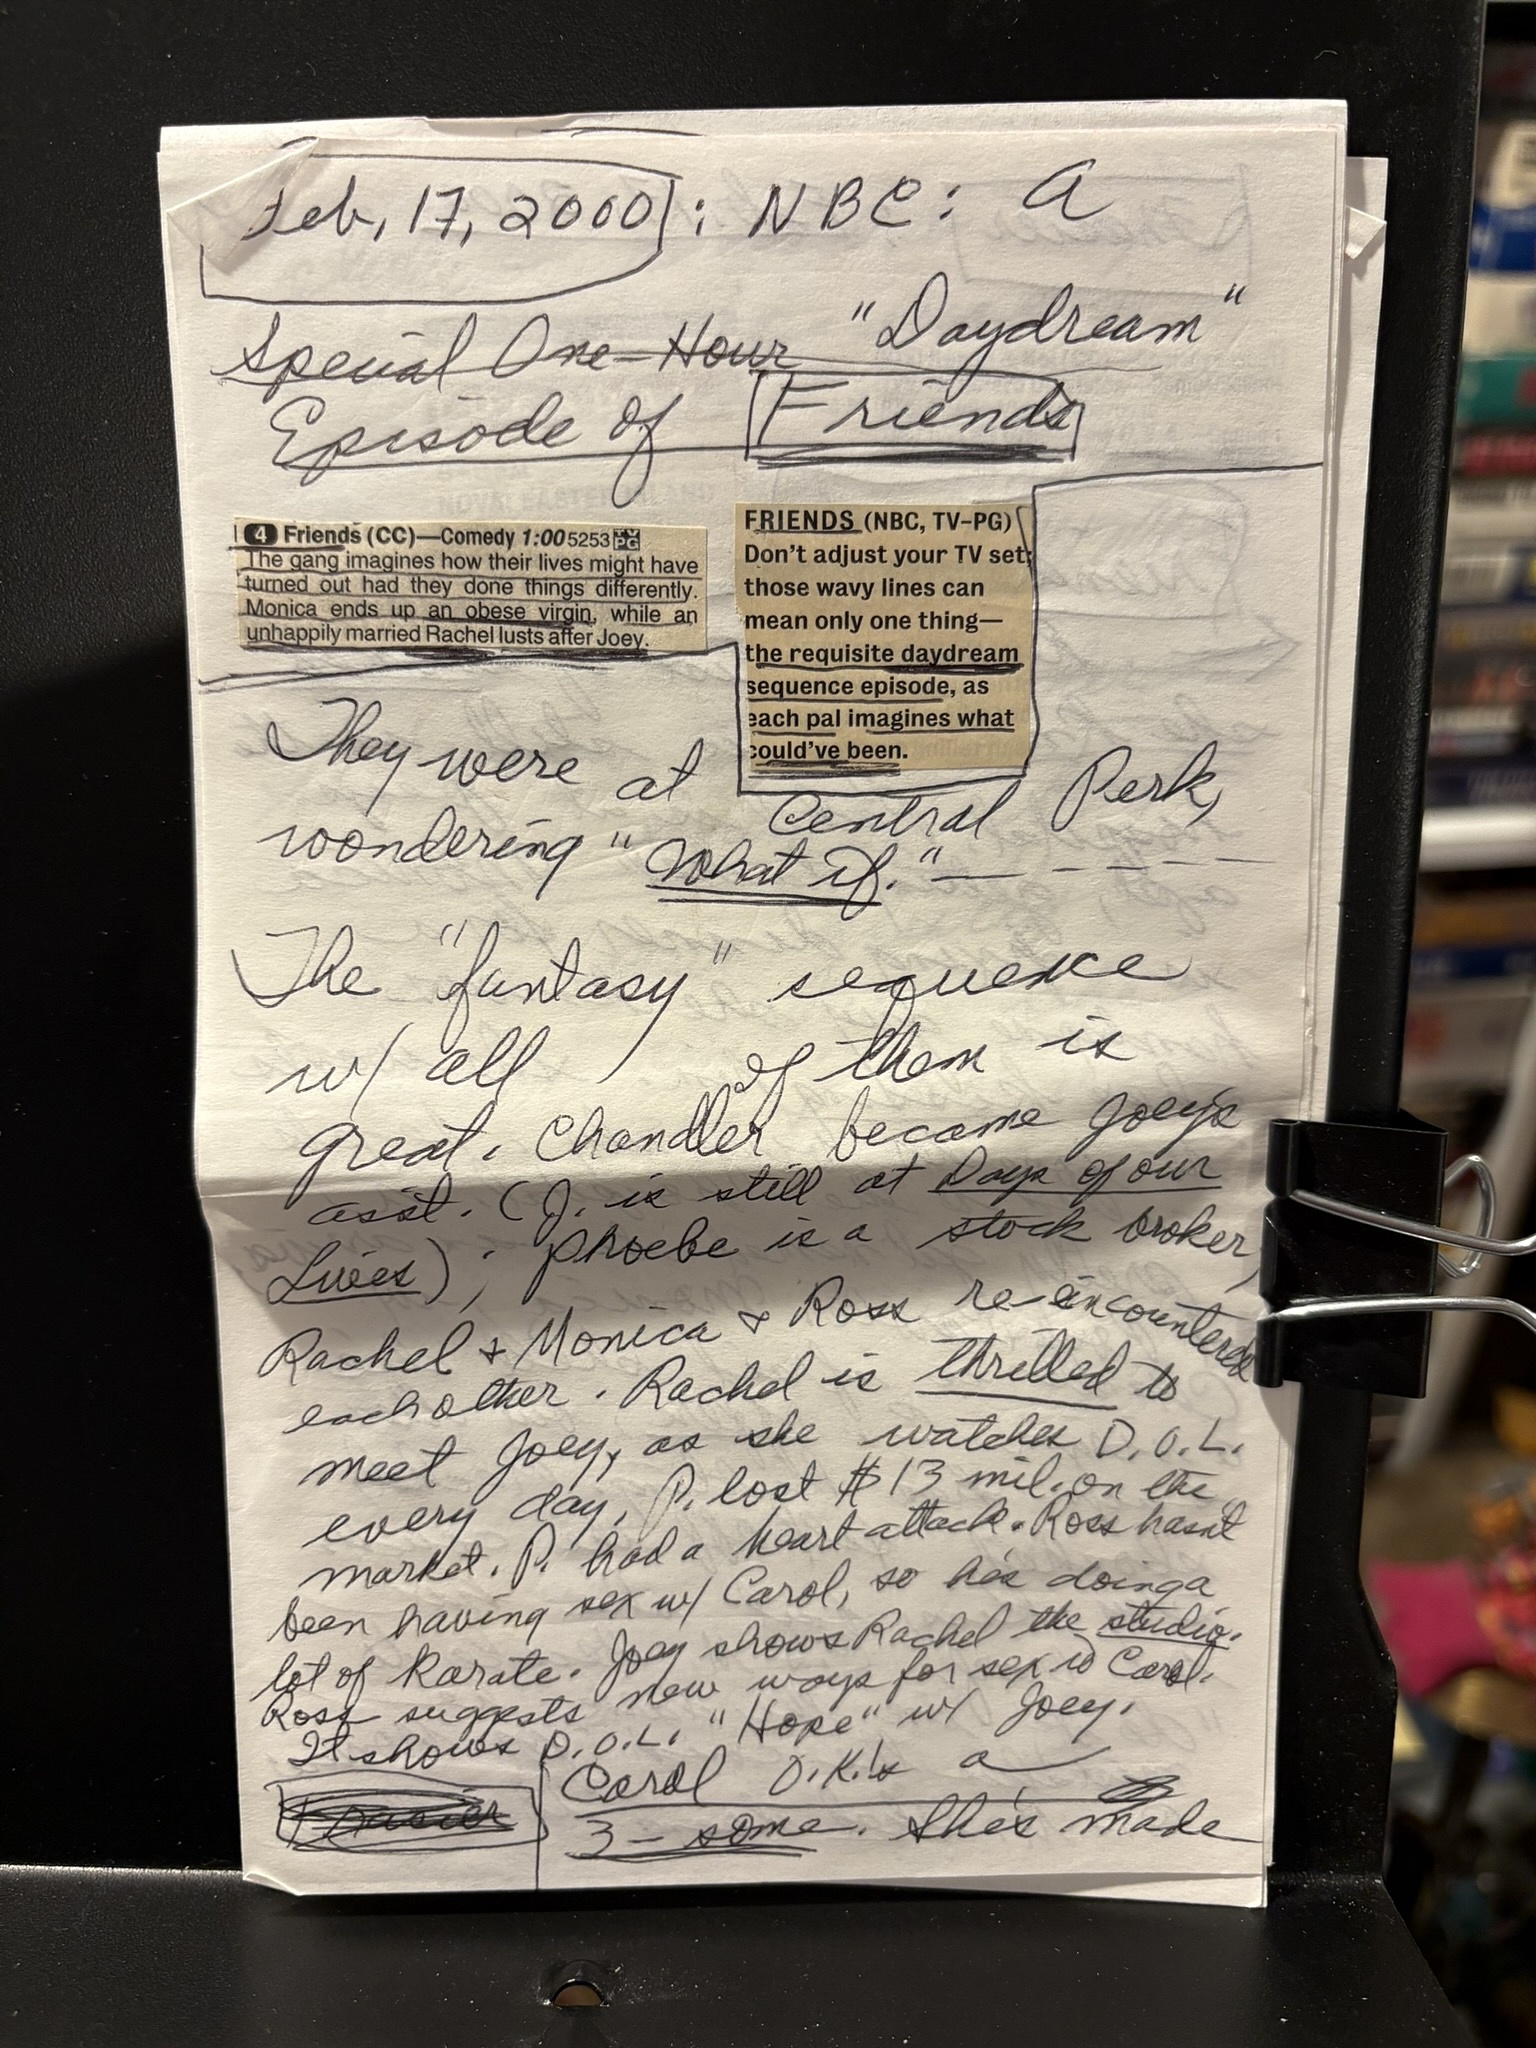 Feb, 17, 2000 : NBC : A
Special One-Hour "Daydream"
Episode of Friends
4 Friends (CC)—Comedy 1:00 5253 TV PG
The gang imagines how their lives might have
turned out had they done things differently.
Monica ends up an obese virgin, while an
unhappily married Rachel lusts after Joey.
FRIENDS (NBC, TV-PG)
Don't adjust your TV set;
those wavy lines can
mean only one thing—
the requisite daydream
sequence episode, as
each pal imagines what
could've been.
They were at Central Perk,
wondering "What if." — — — —
The "fantasy" sequence
w/ all of them is
great. Chandler became Joey's
ass't. (J. is still at Days of our
Lives) ; Phoebe is a stock broker,
Rachel & Monica & Ross re-encountered
each other. Rachel is thrilled to
meet Joey, as she watches D.O.L.
every day. P. lost $13 mil. on the
market. P. had a heart attack. Ross hasn't
been having sex w/ Carol, so he's doing a
lot of Karate. Joey shows Rachel the studio.
Ross suggests new ways for sex w/ Carol.
It shows D.O.L. "Hope" w/ Joey.
Carol O.K.'s a
3-some. She's made
Frasier